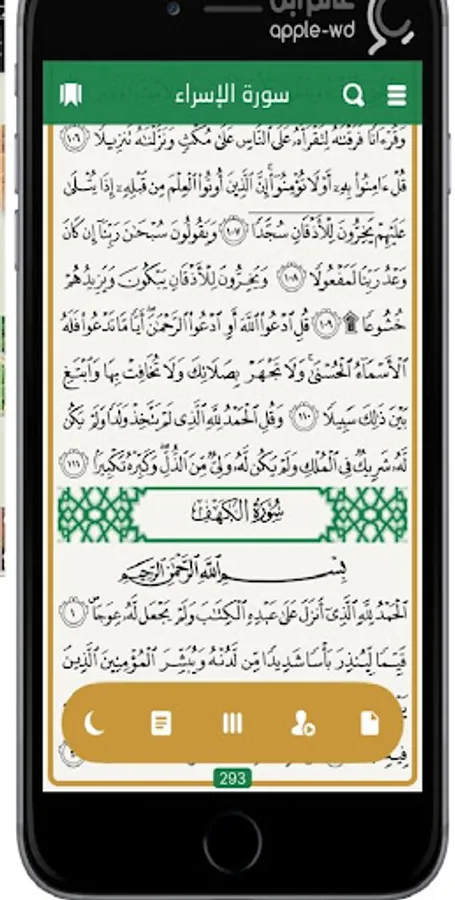 عالم آبل
apple-wd
سورة الإسراء
وَقُرْءَانًا فَرَقْنَٰهُ لِتَقْرَأَهُۥ عَلَى ٱلنَّاسِ عَلَىٰ مُكْثٍ وَنَزَّلْنَٰهُ تَنزِيلًا ١٠٦
قُلْ ءَامِنُوا۟ بِهِۦٓ أَوْ لَا تُؤْمِنُوٓا۟ إِنَّ ٱلَّذِينَ أُوتُوا۟ ٱلْعِلْمَ مِن قَبْلِهِۦٓ إِذَا يُتْلَىٰ
عَلَيْهِمْ يَخِرُّونَ لِلْأَذْقَانِ سُجَّدًا ١٠٧ وَيَقُولُونَ سُبْحَٰنَ رَبِّنَآ إِن كَانَ
وَعْدُ رَبِّنَا لَمَفْعُولًا ١٠٨ وَيَخِرُّونَ لِلْأَذْقَانِ يَبْكُونَ وَيَزِيدُهُمْ
خُشُوعًا ۩ ١٠٩ قُلِ ٱدْعُوا۟ ٱللَّهَ أَوِ ٱدْعُوا۟ ٱلرَّحْمَٰنَ أَيًّا مَّا تَدْعُوا۟ فَلَهُ
ٱلْأَسْمَآءُ ٱلْحُسْنَىٰ وَلَا تَجْهَرْ بِصَلَاتِكَ وَلَا تُخَافِتْ بِهَا وَٱبْتَغِ
بَيْنَ ذَٰلِكَ سَبِيلًا ١١٠ وَقُلِ ٱلْحَمْدُ لِلَّهِ ٱلَّذِى لَمْ يَتَّخِذْ وَلَدًا وَلَمْ يَكُن
لَّهُۥ شَرِيكٌ فِى ٱلْمُلْكِ وَلَمْ يَكُن لَّهُۥ وَلِىٌّ مِّنَ ٱلذُّلِّ وَكَبِّرْهُ تَكْبِيرًۢا ١١١
سُورَةُ الكَهْفِ
بِسْمِ ٱللَّهِ ٱلرَّحْمَٰنِ ٱلرَّحِيمِ
ٱلْحَمْدُ لِلَّهِ ٱلَّذِىٓ أَنزَلَ عَلَىٰ عَبْدِهِ ٱلْكِتَٰبَ وَلَمْ يَجْعَل لَّهُۥ عِوَجَا ١
قَيِّمًا لِّيُنذِرَ بَأْسًا شَدِيدًا مِّن لَّدُنْهُ وَيُبَشِّرَ ٱلْمُؤْمِنِينَ ٱلَّذِينَ
فِيهِ
293